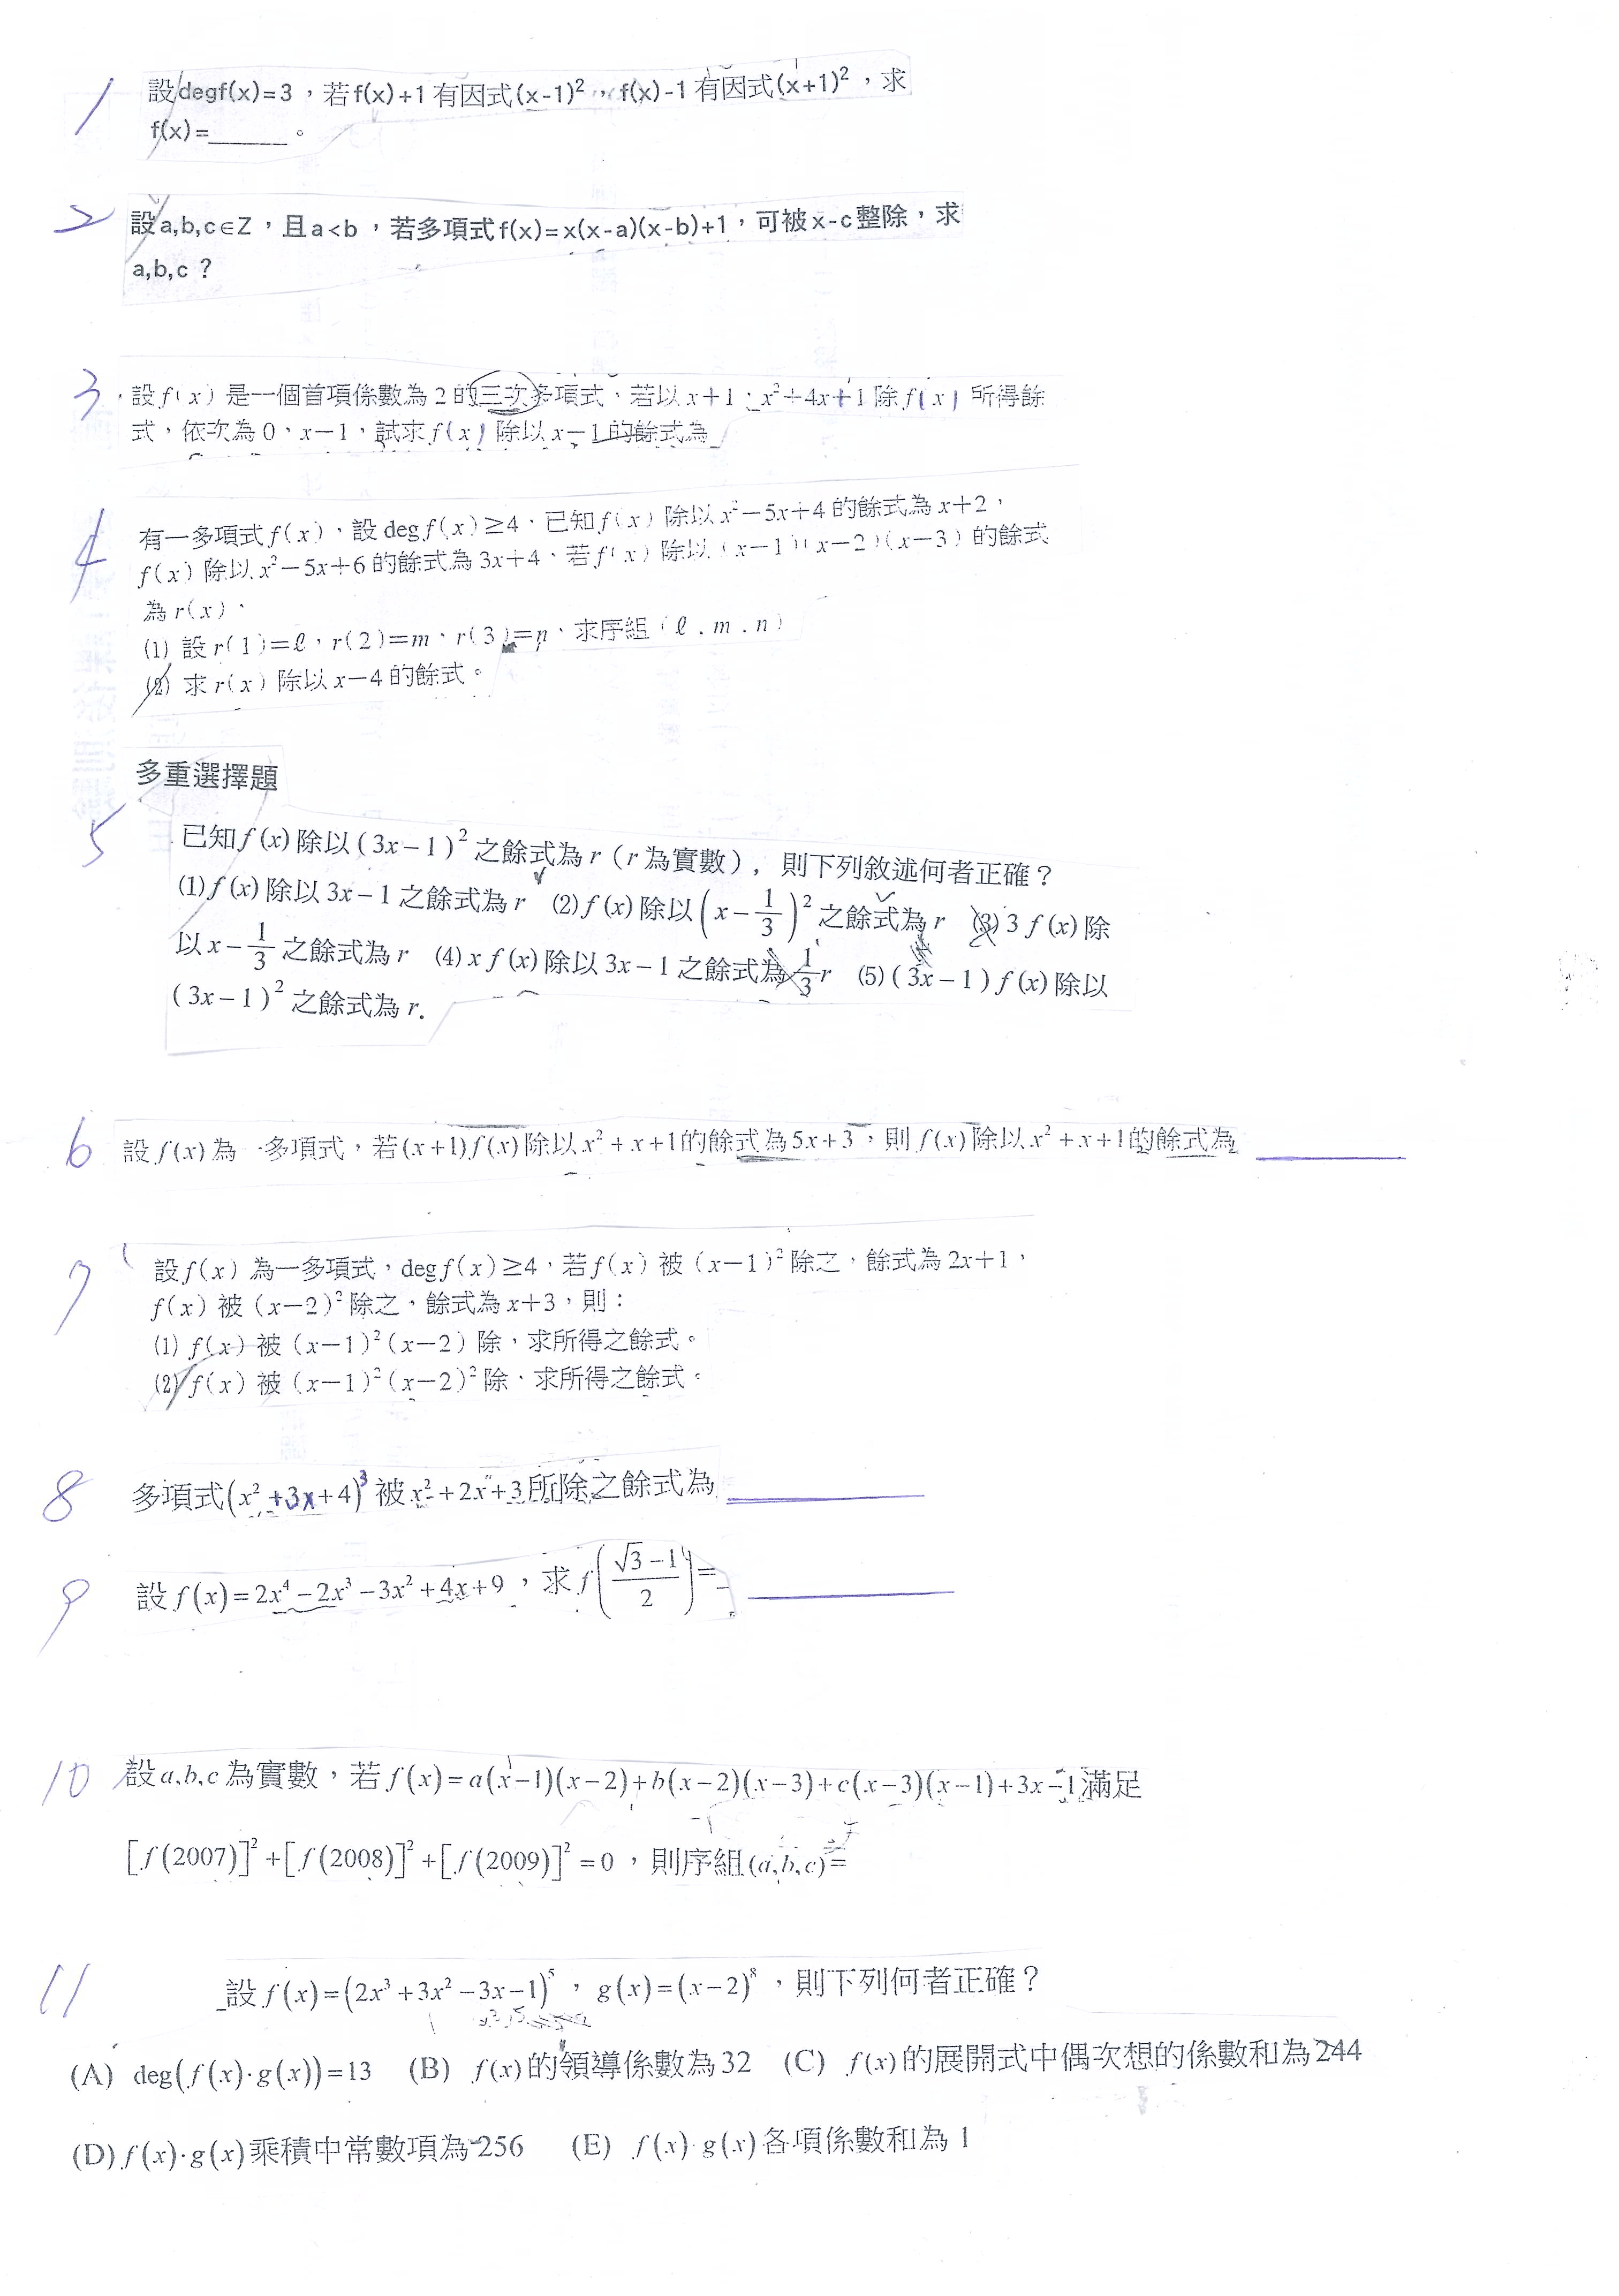 1 設degf(x)=3，若f(x)+1有因式(x-1)²，f(x)-1有因式(x+1)²，求
f(x)=______。
2 設a,b,c∈Z，且a<b，若多項式f(x)=x(x-a)(x-b)+1，可被x-c整除，求
a,b,c？
3 設f(x)是一個首項係數為2的三次多項式，若以x+1，x²+4x+1除f(x)所得餘
式，依次為0，x−1，試求f(x)除以x−1的餘式為
4 有一多項式f(x)，設deg f(x)≥4，已知f(x)除以x²−5x+4的餘式為x+2，
f(x)除以x²−5x+6的餘式為3x+4，若f(x)除以(x−1)(x−2)(x−3)的餘式
為r(x)，
(1) 設r(1)=ℓ，r(2)=m，r(3)=n，求序組(ℓ,m,n)
(2) 求r(x)除以x−4的餘式。
多重選擇題
5 已知f(x)除以(3x−1)²之餘式為r（r為實數），則下列敘述何者正確？
(1)f(x)除以3x−1之餘式為r (2)f(x)除以(x−1/3)²之餘式為r (3)3f(x)除
以x−1/3之餘式為r (4)xf(x)除以3x−1之餘式為1/3r (5)(3x−1)f(x)除以
(3x−1)²之餘式為r.
6 設f(x)為一多項式，若(x+1)f(x)除以x²+x+1的餘式為5x+3，則f(x)除以x²+x+1的餘式為
7 設f(x)為一多項式，deg f(x)≥4，若f(x)被(x−1)²除之，餘式為2x+1，
f(x)被(x−2)²除之，餘式為x+3，則：
(1) f(x)被(x−1)²(x−2)除，求所得之餘式。
(2) f(x)被(x−1)²(x−2)²除，求所得之餘式。
8 多項式(x²+3x+4)³被x²+2x+3所除之餘式為
9 設f(x)=2x⁴−2x³−3x²+4x+9，求f((√3−1)/2)=
10 設a,b,c為實數，若f(x)=a(x−1)(x−2)+b(x−2)(x−3)+c(x−3)(x−1)+3x−1滿足
[f(2007)]²+[f(2008)]²+[f(2009)]²=0，則序組(a,b,c)=
11 設f(x)=(2x³+3x²−3x−1)⁵，g(x)=(x−2)⁸，則下列何者正確？
(A) deg(f(x)·g(x))=13 (B) f(x)的領導係數為32 (C) f(x)的展開式中偶次想的係數和為244
(D)f(x)·g(x)乘積中常數項為-256 (E) f(x)·g(x)各項係數和為1